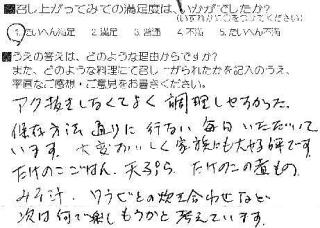 ■召し上がってみての満足度は、いかがでしたか?
(いずれかに○をつけてください)
1.たいへん満足 2.満足 3.普通 4.不満 5.たいへん不満
■うえの答えは、どのような理由からですか?
また、どのような料理にて召し上がられたかを記入のうえ、
率直なご感想・ご意見をお書きください。
アク抜きしなくてよく 調理しやすかった。
保存方法 通りに 行ない 毎日 いただいて
います。大変おいしく 家族にも大好評です。
たけのこごはん、天ぷら、たけのこの煮もの
みそ汁、わらびとの炊き合わせなど
次は何で楽しもうかと 考えています。